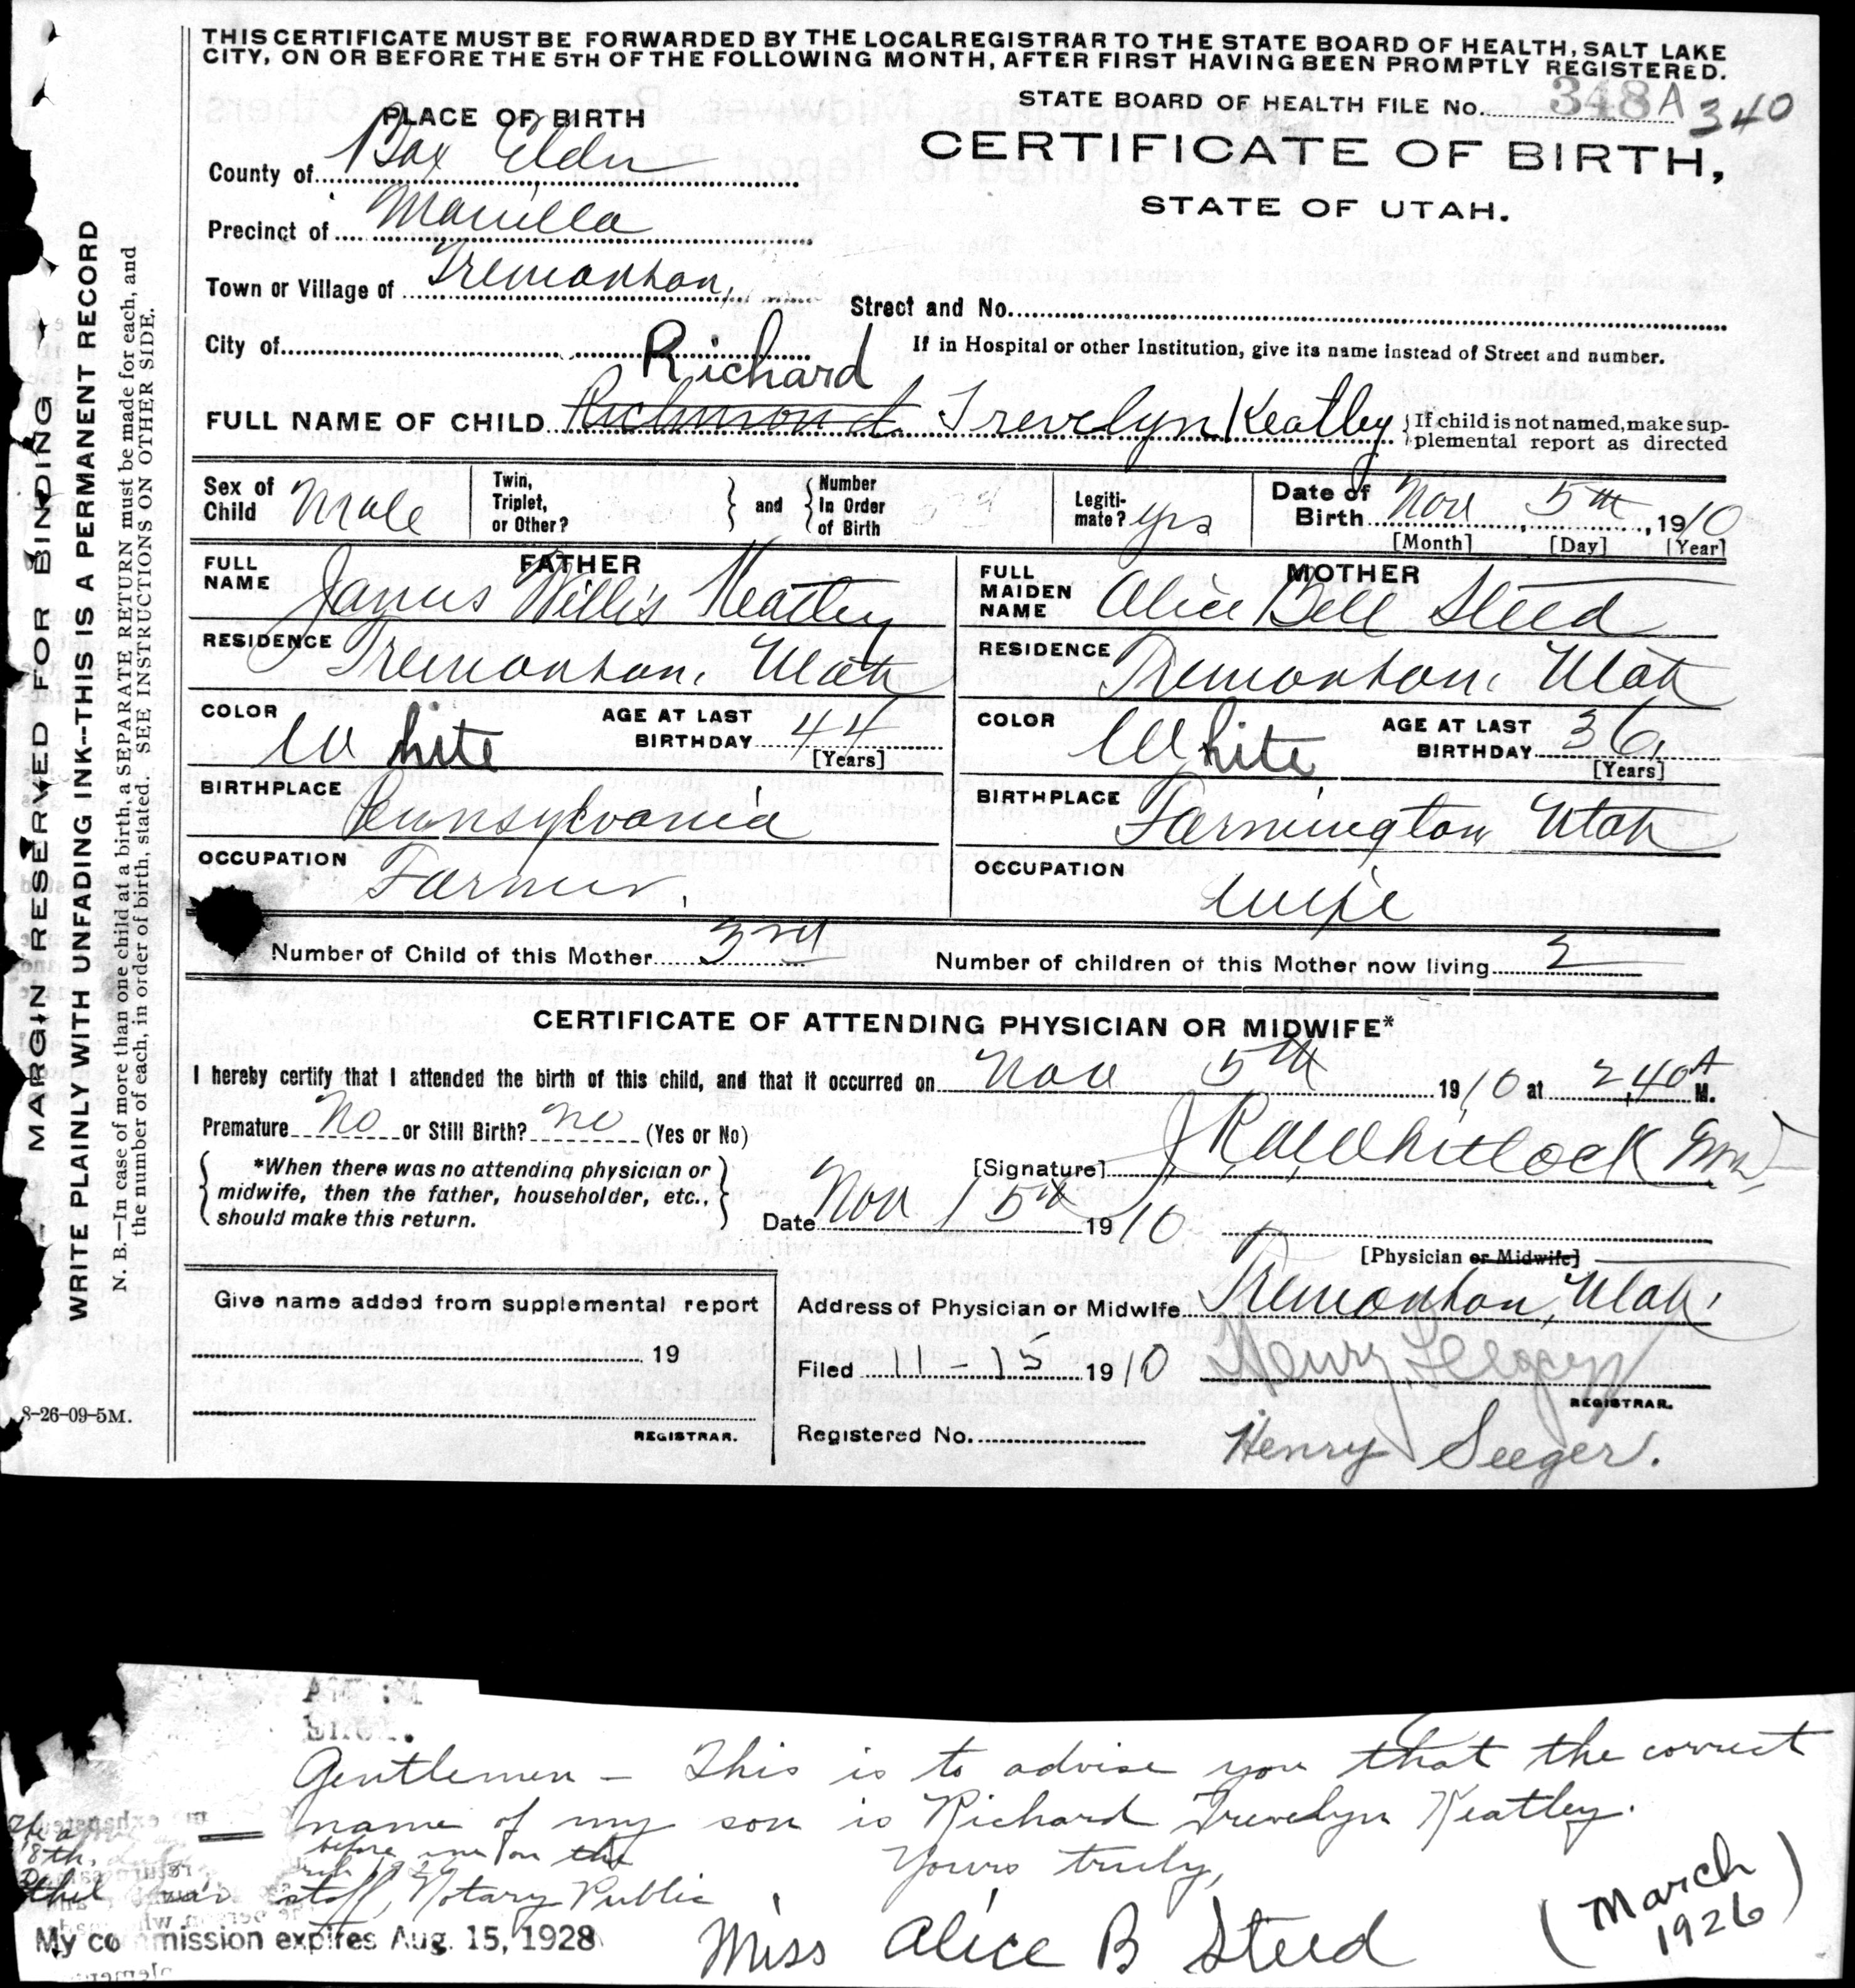 THIS CERTIFICATE MUST BE FORWARDED BY THE LOCAL REGISTRAR TO THE STATE BOARD OF HEALTH, SALT LAKE
CITY, ON OR BEFORE THE 5TH OF THE FOLLOWING MONTH, AFTER FIRST HAVING BEEN PROMPTLY REGISTERED.
STATE BOARD OF HEALTH FILE No. 348A 340
PLACE OF BIRTH
CERTIFICATE OF BIRTH,
STATE OF UTAH.
County of Box Elder
Precinct of Manilla
Town or Village of Tremonton,
Street and No.
City of
If in Hospital or other Institution, give its name instead of Street and number.
Richard
FULL NAME OF CHILD Richmond Trevelyn Keatley { If child is not named, make sup-
plemental report as directed
Sex of Child Male
Twin, Triplet, or Other? } and { Number In Order of Birth
Legiti-mate? yes
Date of Birth Nov 5th, 1910
[Month] [Day] [Year]
FATHER
FULL NAME James Willis Keatley
RESIDENCE Tremonton, Utah
COLOR White AGE AT LAST BIRTHDAY 44 [Years]
BIRTHPLACE Pennsylvania
OCCUPATION Farmer,
MOTHER
FULL MAIDEN NAME Alice Bell Steed
RESIDENCE Tremonton, Utah
COLOR White AGE AT LAST BIRTHDAY 36, [Years]
BIRTHPLACE Farmington Utah
OCCUPATION wife
Number of Child of this Mother 3rd Number of children of this Mother now living 2
CERTIFICATE OF ATTENDING PHYSICIAN OR MIDWIFE*
I hereby certify that I attended the birth of this child, and that it occurred on Nov 5th 1910 at 2,40 A M.
Premature No or Still Birth? no (Yes or No)
{ *When there was no attending physician or
midwife, then the father, householder, etc.,
should make this return. }
[Signature] Whitlock
Date Nov 15th 1910
[Physician or Midwife]
Give name added from supplemental report
19
REGISTRAR.
Address of Physician or Midwife Tremonton, Utah,
Filed 11-15 1910 Henry Seeger
REGISTRAR.
Registered No. Henry Seeger.
MARGIN RESERVED FOR BINDING
WRITE PLAINLY WITH UNFADING INK--THIS IS A PERMANENT RECORD
N. B.—In case of more than one child at a birth, a SEPARATE RETURN must be made for each, and
the number of each, in order of birth, stated. SEE INSTRUCTIONS ON OTHER SIDE.
8-26-09-5M.
Gentlemen - This is to advise you that the correct
name of my son is Richard Trevelyn Keatley.
before me on the
18th,
Yours truly,
Notary Public
My commission expires Aug. 15, 1928
Miss Alice B Steed
(March 1926)